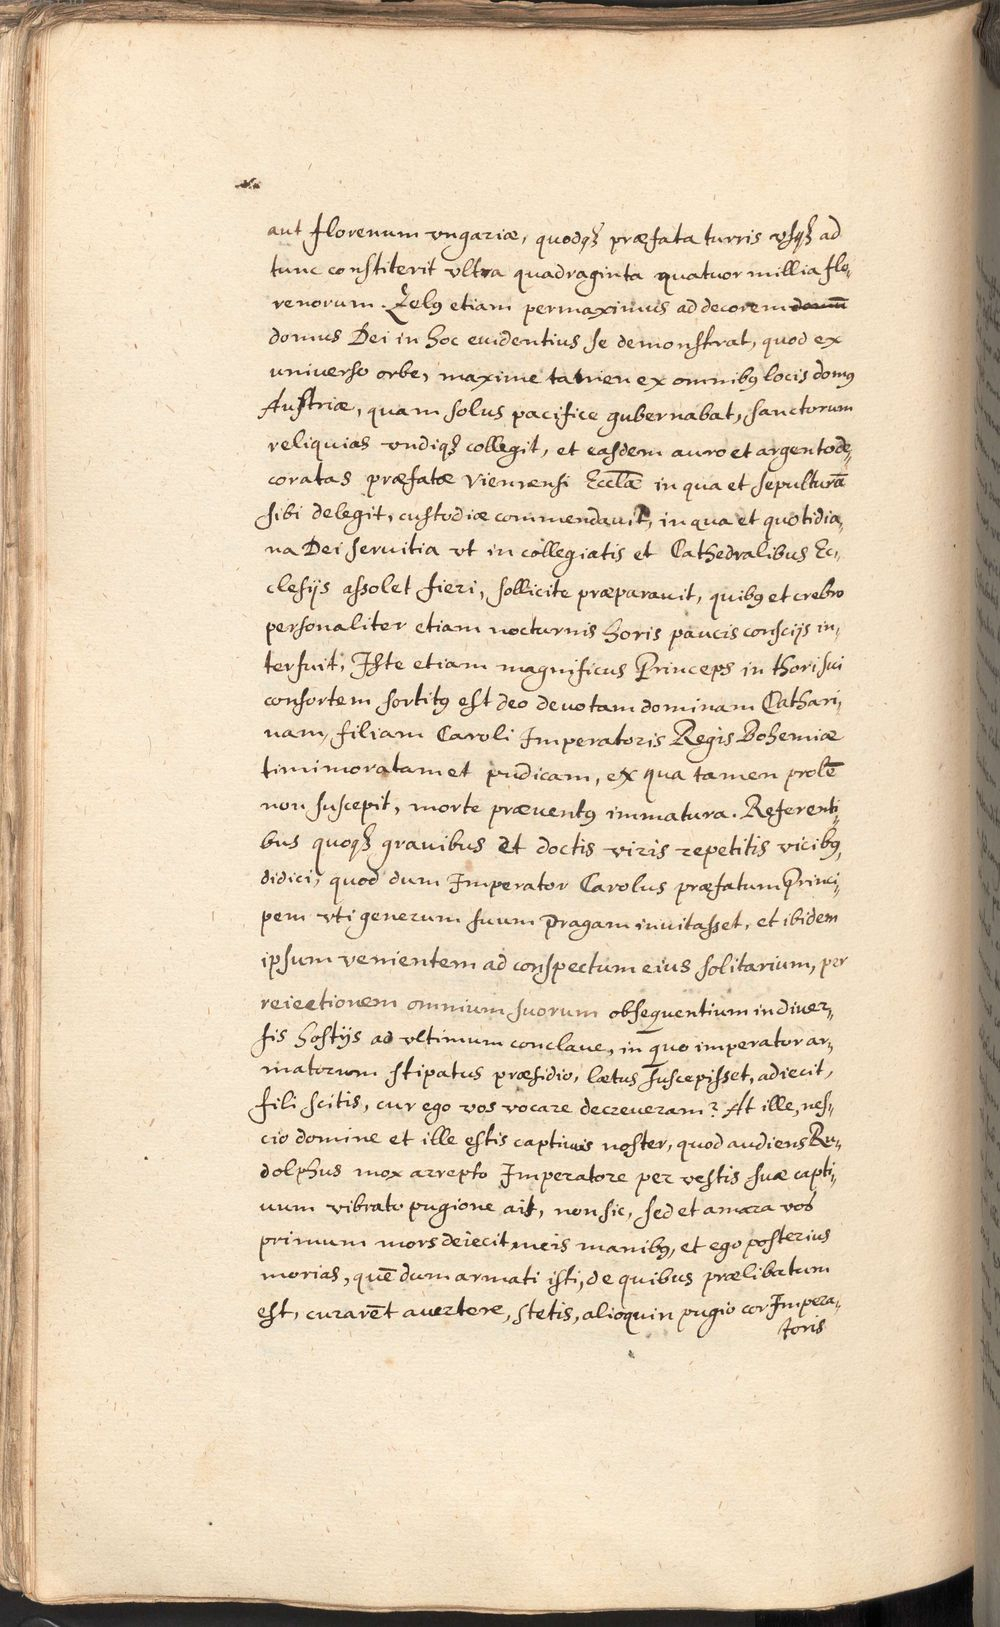 aut florenum vngariæ, quodqꝫ præfata turris vsqꝫ ad
tunc constiterit vltra quadraginta quatuor millia flo,
renorum. Zelꝰ etiam permaximus ad decorem domū
domus Dei in hoc euidentius se demonstrat, quod ex
universo orbe, maxime tamen ex omnibꝰ locis domꝰ
Austriæ, quam solus pacifice gubernabat, sanctorum
reliquias vndiqꝫ collegit, et easdem auro et argento de,
coratas præfatæ Viennensi Eccl̄æ in qua et sepulturā
sibi delegit, custodiæ commendauit, in qua et quotidia,
na Dei seruitia vt in collegiatis et Cathedralibus Ec,
clesijs assolet fieri, sollicite præparauit, quibꝰ et crebro
personaliter etiam nocturnis horis paucis conscijs in,
terfuit, Iste etiam magnificus Princeps in thori sui
consortem sortitꝰ est deo deuotam dominam Cathari,
nam, filiam Caroli Imperatoris Regis Bohemiæ
timimoratam et pudicam, ex qua tamen prolē
non suscepit, morte præuentꝰ immatura. Referenti,
bus quoqꝫ grauibus et doctis viris repetitis vicibꝰ,
didici, quod dum Imperator Carolus præfatum Princi,
pem vti generum suum Pragam inuitasset, et ibidem
ipsum venientem ad conspectum eius solitarium, per
reiectionem omnium suorum obsequentium in diuer,
sis hostijs ad vltimum conclaue, in quo imperator ar,
matorum stipatus præsidio, lætus suscepisset, adiecit,
fili scitis, cur ego vos vocare decreueram? At ille, nes,
cio domine et ille estis captiuus noster, quod audiens Ru,
dolphus mox arrepto Imperatore per vestis suæ capti,
uum vibrato pugione ait, non sic, sed et amara vos
primum mors deiecit meis manibꝰ, et ego posterius
morias, quē dum armati isti, de quibus prælibatum
est, curarēt auertere, stetis, alioquin pugio cor Impera,
toris